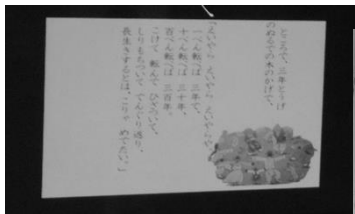 ところで、三年とうげ
のぬるでの木のかげで、
「えいやら えいやら えいやらや。
一ぺん転べば 三年で、
十ぺん転べば 三十年、
百ぺん転べば 三百年。
こけて 転んで ひざついて、
しりもちついて でんぐり返り、
長生きするとは、こりゃ めでたい。」